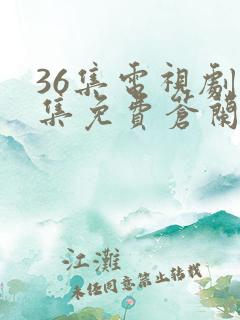 36集電視劇
集免費蒼蘭
江灘
未经同意禁止转载